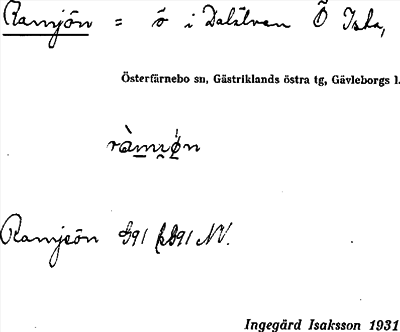 Ramjön = ö i Dalälven Ö Isla,
Österfärnebo sn, Gästriklands östra tg, Gävleborgs l.
ràmjön
Ramjeön G91 N.V.
Ingegärd Isaksson 1931